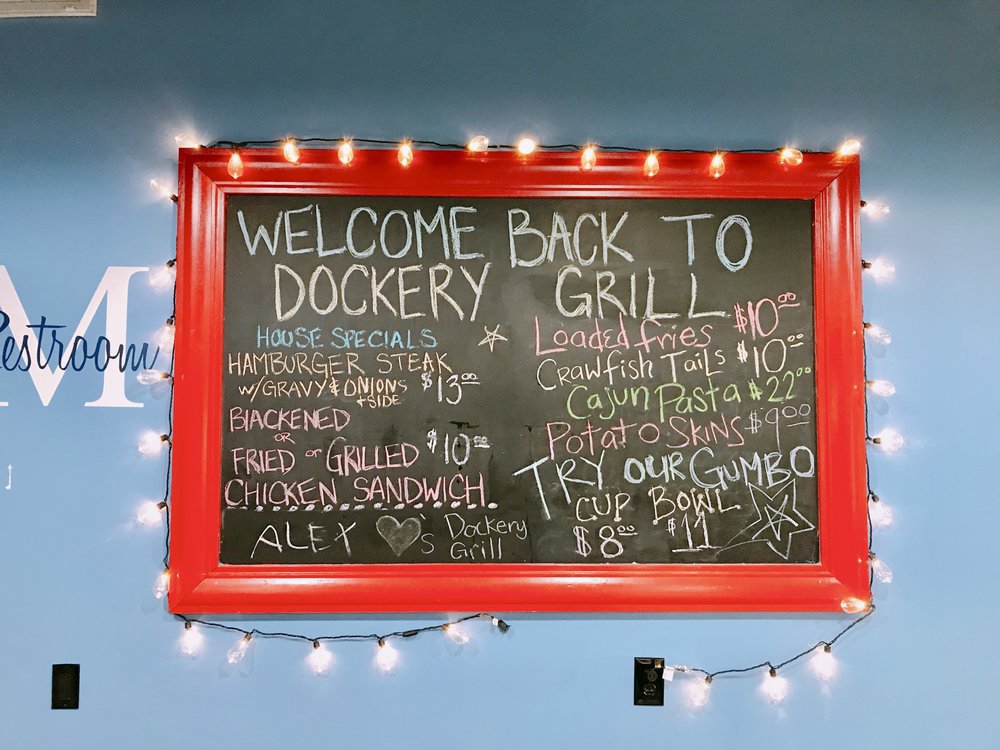 WELCOME BACK TO
DOCKERY GRILL
HOUSE SPECIALS
HAMBURGER STEAK
W/GRAVY & ONIONS $13.00
+ SIDE
BLACKENED
OR
FRIED or GRILLED $10.00
CHICKEN SANDWICH
ALEX ♥'S Dockery
Grill
Loaded fries $10.00
Crawfish Tails $10.00
Cajun Pasta $22.00
Potato Skins $9.00
TRY OUR GUMBO
CUP BOWL
$8.00 $11
M
Restroom